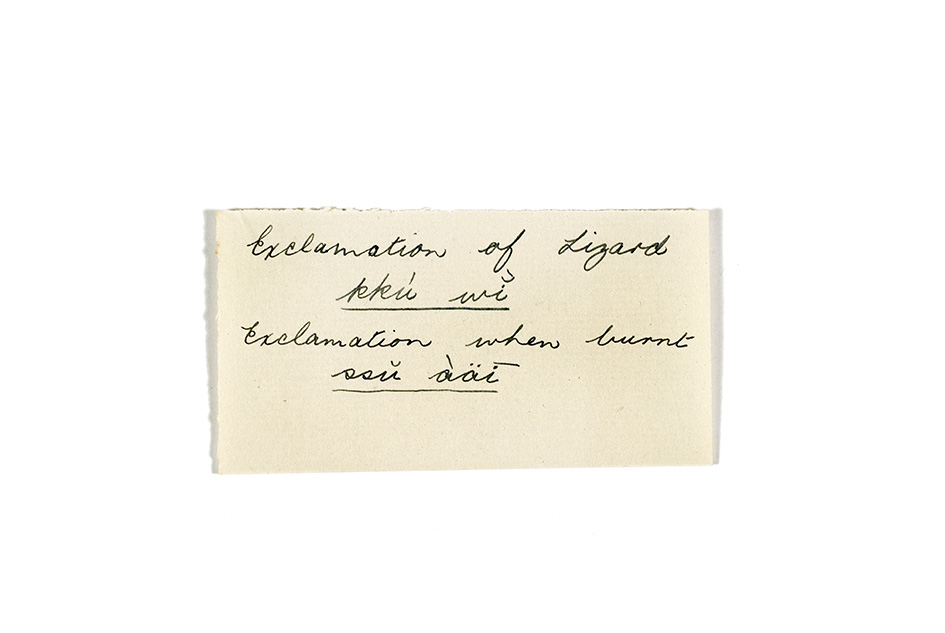 Exclamation of Lizard
kkú wĭ
Exclamation when burnt
ssŭ àäī